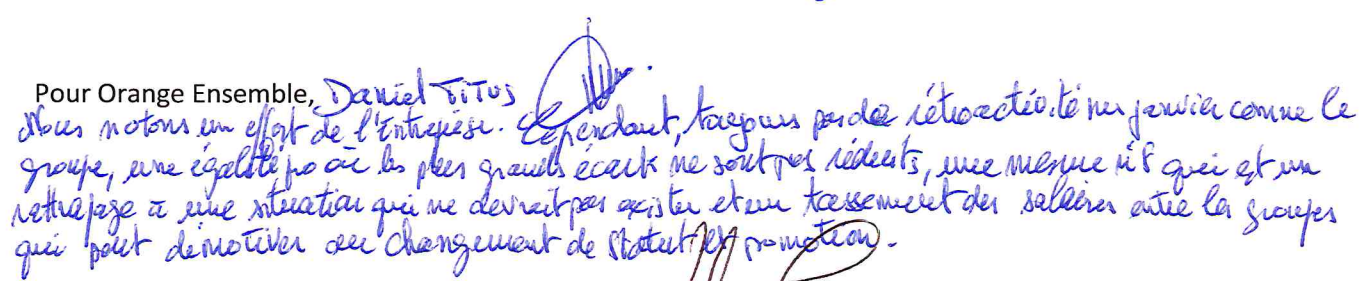 Pour Orange Ensemble, Daniel TITUS
Nous notons un effort de l'Entreprise. Cependant, toujours pas de rétroactivité en janvier comme le
groupe, une égalité pro où les plus grands écarts ne sont pas réduits, une mesure N°8 qui est un
rattrapage à une situation qui ne devrait pas exister et un tassement des salaires entre les groupes
qui peut démotiver au changement de statut et promotion.